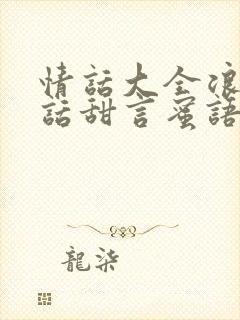 情話大全浪
話甜言蜜語
龍柒